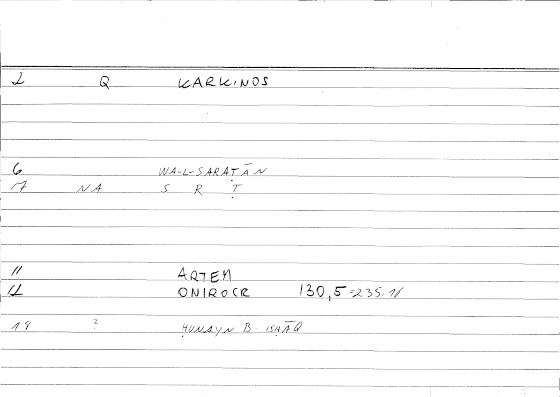 1 Q KARKINOS
6 WA-L-SARAṬĀN
7 NA S R Ṭ
11 ARTEM
12 ONIROCR 130,5=235.16
19 ? ḤUNAYN B. ISḤĀQ